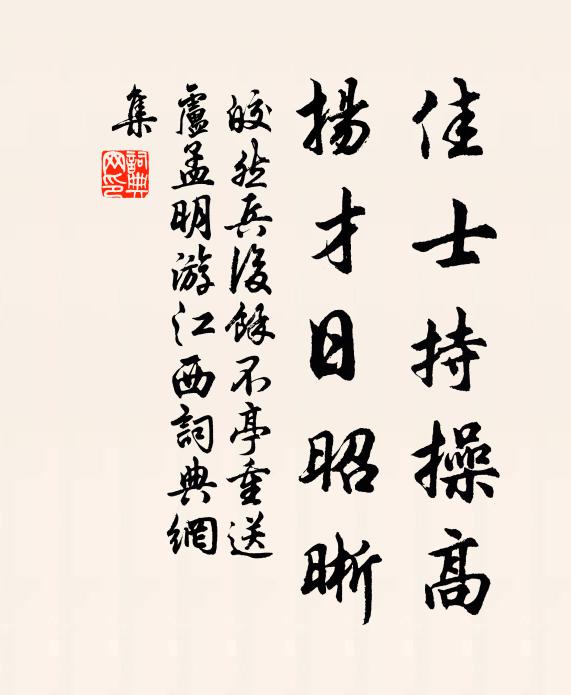 佳士持操高
揚才日昭晰
皎然兵後餘不亭重送
盧孟明游江西詞典網
集
詞典網印